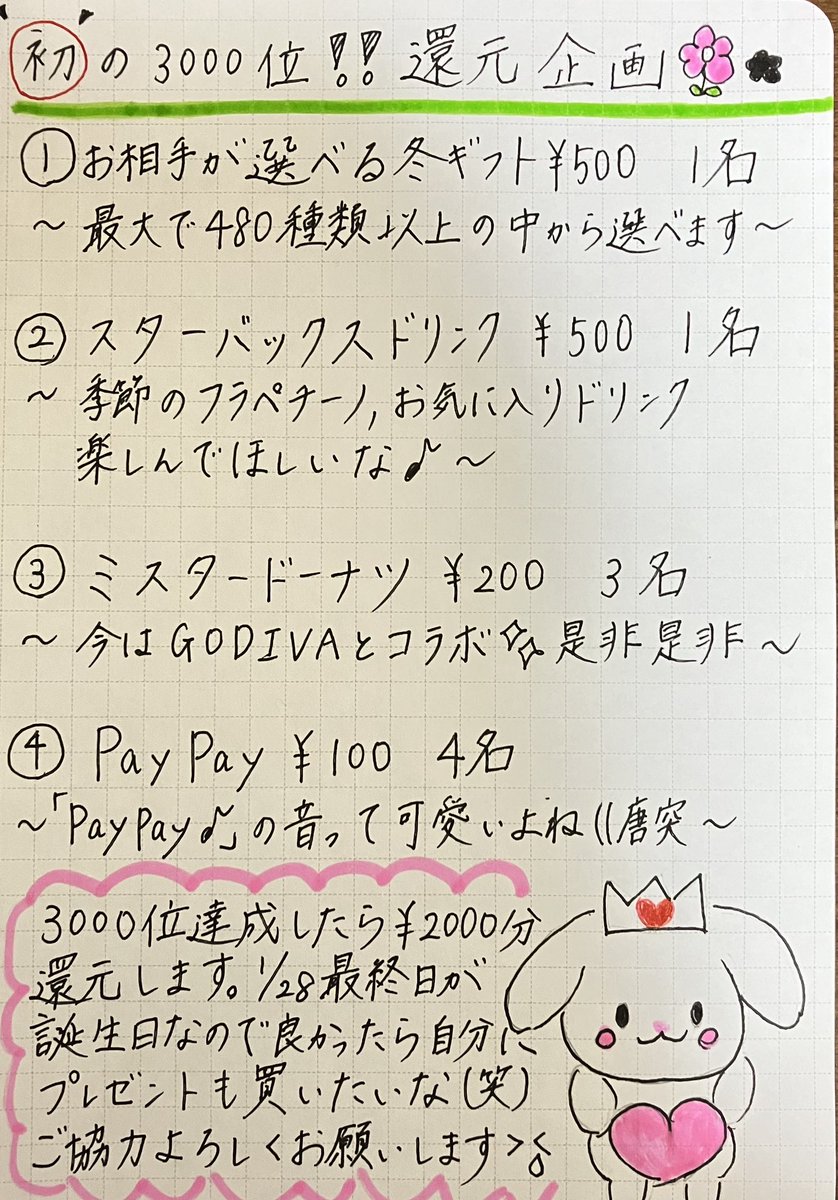 初の3000位!!還元企画
①お相手が選べる冬ギフト¥500 1名
～最大で480種類以上の中から選べます～
②スターバックスドリンク ¥500 1名
～季節のフラペチーノ,お気に入りドリンク
楽しんでほしいな♪～
③ミスタードーナツ ¥200 3名
～今はGODIVAとコラボ✨是非是非～
④PayPay ¥100 4名
～「PayPay♪」の音って可愛いよね((唐突～
3000位達成したら¥2000分
還元します。1/28最終日が
誕生日なので良かったら自分に
プレゼントも買いたいな(笑)
ご協力よろしくお願いします